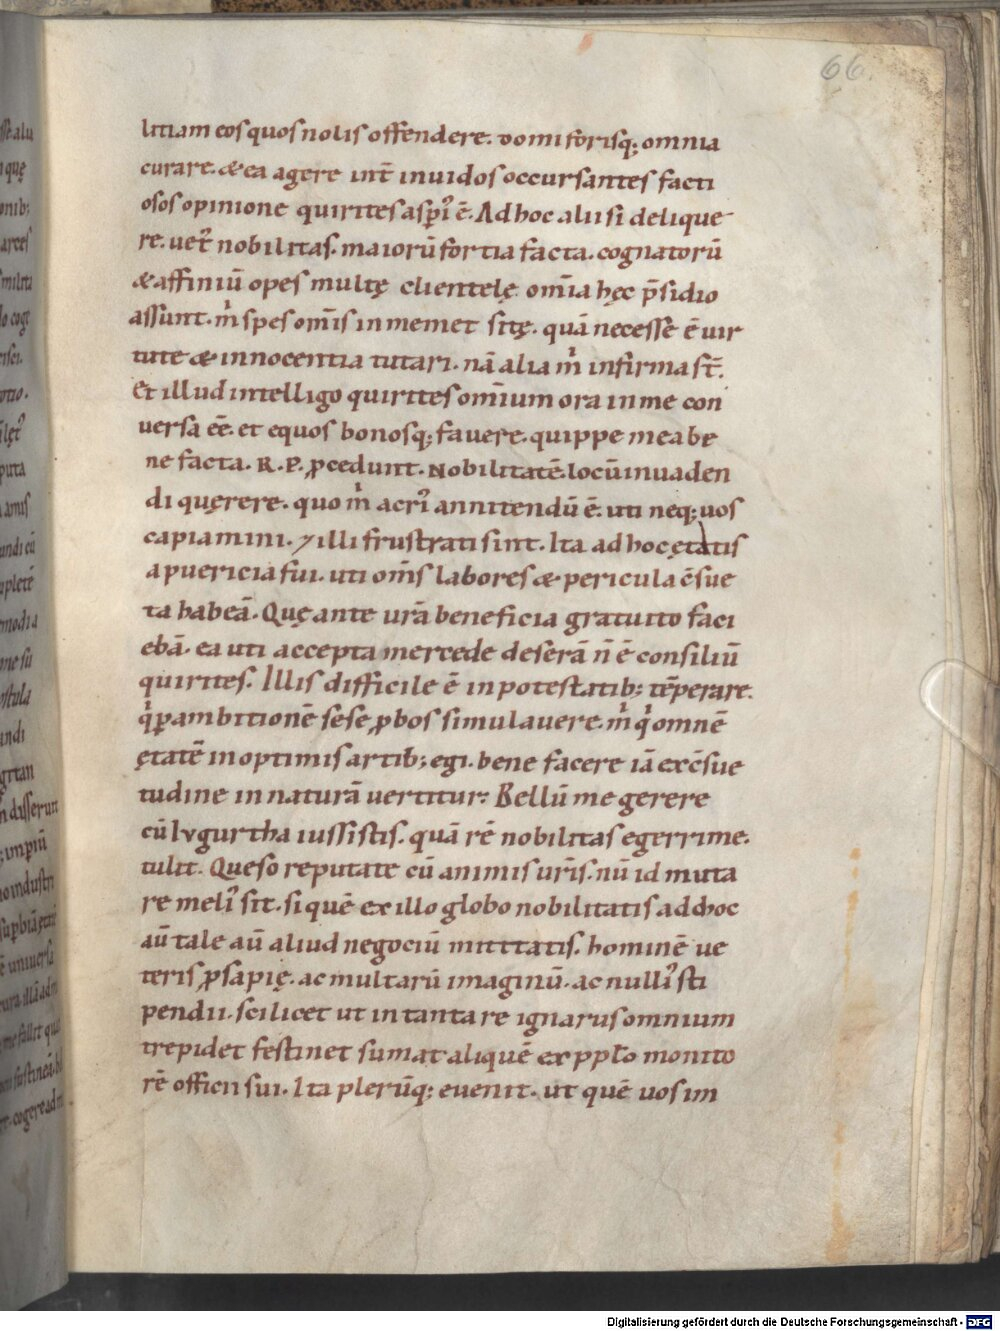 66.
litiam eos quos nolis offendere. domi forisq; omnia
curare. & ea agere int̄ inuidos occursantes facti
osos opinione quirites asp̄i᾿ ē. Ad hoc alii si delique
re. uet᾿ nobilitas. maiorū fortia facta. cognatorū
& affiniū opes multę clientelę om̄ia hęc p̄sidio
assunt. m̍ spes om̄is in memet sitę. quā necesse ē uir
tute & innocentia tutari. nā alia m̍ infirma st̄.
Et illud intelligo quirites om̄ium ora in me con
uersa eē. et equos bonosq; fauere. quippe mea be
ne facta. R.P. ꝓcedunt. Nobilitatē. locū inuaden
di quęrere. quo m̍ acri᾿ annitendū ē. uti neq; uos
capiamini. illi frustrati sint. Ita ad hoc ętatis
a puericia fui. uti om̄s labores & pericula c̄sue
ta habeā. Quę ante ur̄a beneficia gratuito faci
ebā. ea uti accepta mercede deserā n̄ ē consiliū
quirites. Illis difficile ē in potestatib; tēperare.
q̍ ꝑ ambitionē sese ꝓbos simulauere. m̍ q̍ omnē
ętatē in optimis artib; egi. bene facere iā ex c̄sue
tudine in naturā uertitur. Bellū me gerere
cū Iugurtha iussistis. quā rē nobilitas egerrime.
tulit. Queso reputate cū animis ur̄is. nū id muta
re meli᾿ sit. si quē ex illo globo nobilitatis ad hoc
aū tale aū aliud negociū mittatis. hominē ue
teris ꝓsapię. ac multarū imaginū. ac nulli᾿ sti
pendii. scilicet ut in tanta re ignarus omnium
trepidet festinet sumat aliquē ex ppłō monito
rē officii sui. Ita plerūq; euenit. ut quē uos im
Digitalisierung gefördert durch die Deutsche Forschungsgemeinschaft - DFG